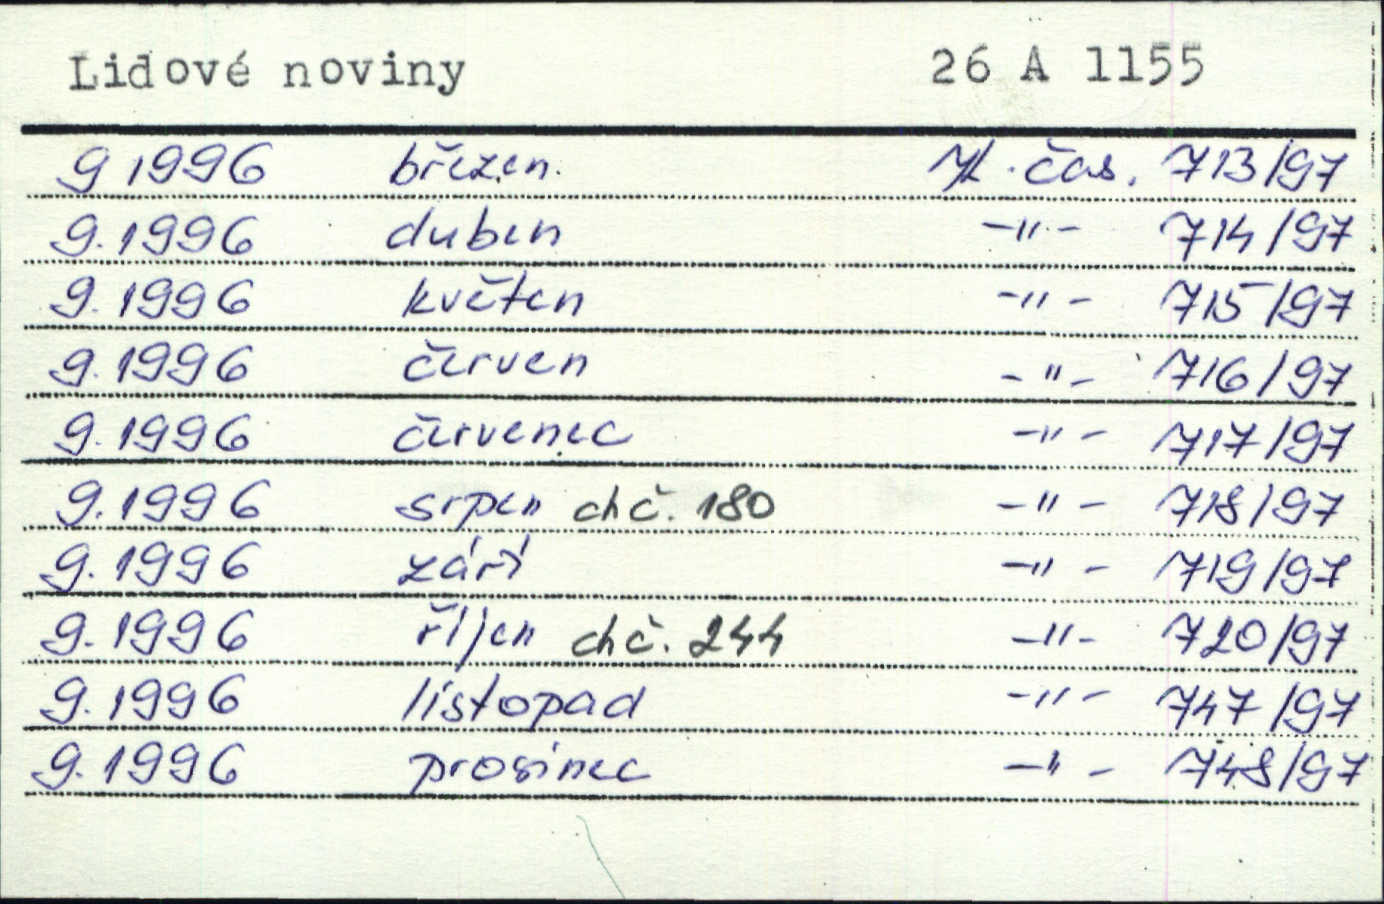 Lidové noviny 26 A 1155
9 1996 březen. čas. 713/97
9. 1996 duben -"- 714/97
9. 1996 květen -"- 715/97
9. 1996 červen -"- 716/97
9. 1996 červenec -"- 717/97
9. 1996 srpen ch č. 180 -"- 718/97
9. 1996 září -"- 719/97
9. 1996 říjen ch č. 244 -"- 720/97
9. 1996 listopad -"- 747/97
9. 1996 prosinec -"- 748/97